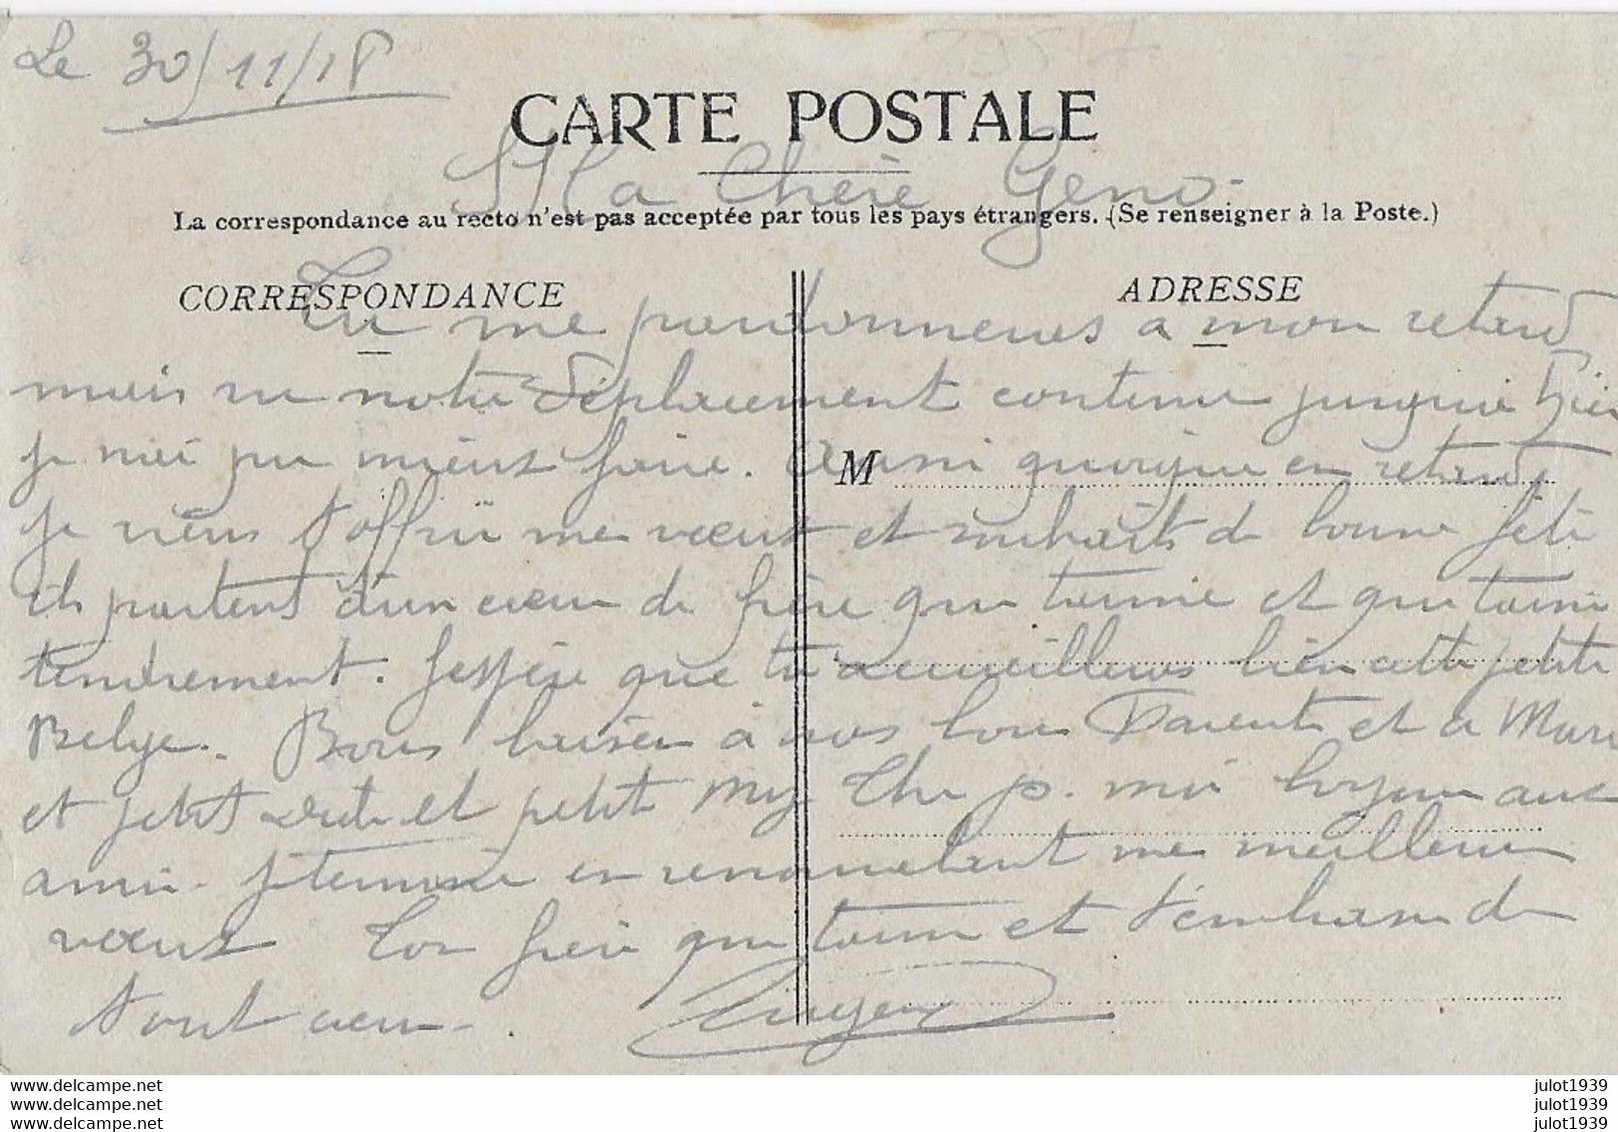 Le 30/11/18
CARTE POSTALE
Ma Chère Geno.
La correspondance au recto n'est pas acceptée par tous les pays étrangers. (Se renseigner à la Poste.)
CORRESPONDANCE
ADRESSE
Tu me pardonneras a mon retard
mais vu notre déplacement continu jusqu'a hier
je n'ai pu mieux faire. Aussi quoique en retard
M
je viens t'offrir mes vœux et souhaits de bonne fête
ils partent d'un cœur de frère qui t'aime et qui t'aime
tendrement. J'espère que tu accueilleras bien cette petite
Belge. Bons baisers à nos bons Parents et a
et petit et petit p. moi aux
amis je termine en renouvelant mes meilleurs
vœux Ton frère qui t'aime et t'embrasse de
tout cœur.
Eugène
www.delcampe.net
www.delcampe.net
www.delcampe.net
julot1939
julot1939
julot1939